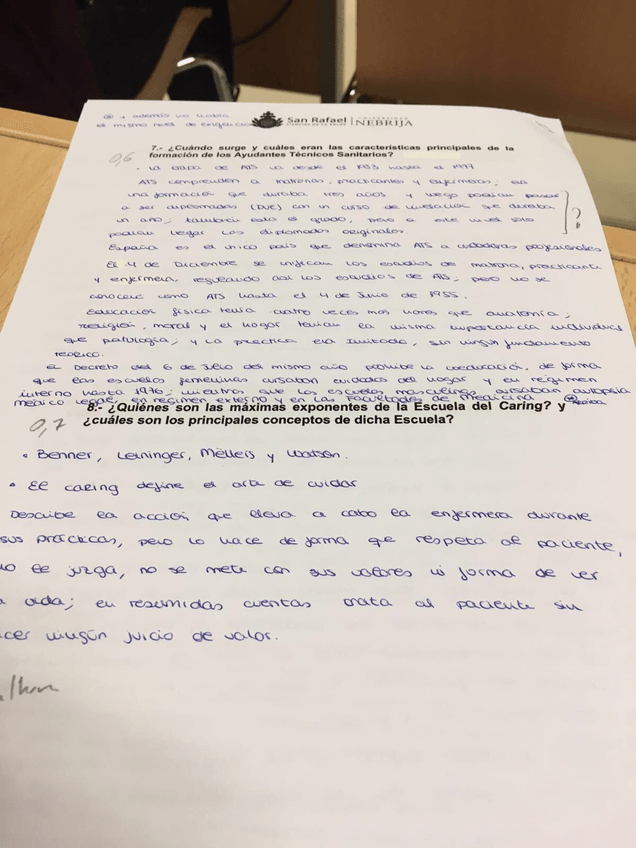 ② y además no había
el mismo nivel de exigencia
San Rafael
NEBRIJA
7.- ¿Cuándo surge y cuáles eran las características principales de la
formación de los Ayudantes Técnicos Sanitarios?
0,6
• La etapa de ATS va desde el 1953 hasta el 1977
ATS comprenden a matronas, practicantes y enfermeras; era
una formación que duraba tres años y luego podían pasar
a ser diplomados (DUE) con un curso de nivelación que duraba
un año; también esta el grado, pero a este nivel solo
podían llegar los diplomados originales.
?
España es el único país que denomina ATS a cuidadoras profesionales
El 4 de Diciembre se unifican los estudios de matrona, practicante
y enfermera, regulando así los estudios de ATS; pero no se
conocerá como ATS hasta el 4 de Junio de 1955.
Educación física tenía cuatro veces más horas que anatomía;
religión, moral y el hogar tenían la misma importancia
que patología; y la práctica era limitada, sin ningún fundamento
teórico.
El Decreto del 6 de Julio del mismo año prohíbe la coeducación, de forma
que las escuelas femeninas cursaban cuidados del hogar y en régimen
interno hasta 1976; mientras que las escuelas masculinas cursaban autopsia
médico legal, en régimen externo y en las Facultades de Medicina
8.- ¿Quiénes son las máximas exponentes de la Escuela del Caring? y
¿cuáles son los principales conceptos de dicha Escuela?
0,7
• Benner, Leininger, Melleis y Watson.
• El caring define el arte de cuidar
Describe la acción que lleva a cabo la enfermera durante
sus prácticas, pero lo hace de forma que respeta al paciente,
no le juzga, no se mete con sus valores ni forma de ver
a vida; en resumidas cuentas trata al paciente sin
cer ningún juicio de valor.